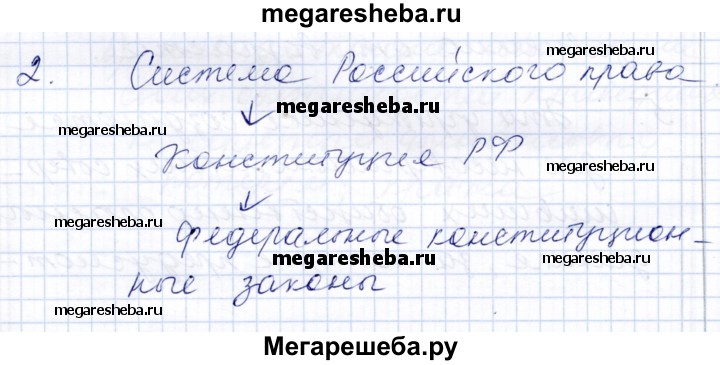 megaresheba.ru
2. Система Российского права
megaresheba.ru
megaresheba.ru
megaresheba.ru
Конституция РФ
megaresheba.ru
megaresheba.ru
Федеральные конституцион-
megaresheba.ru
ные законы
megaresheba.ru
megaresheba.ru
Мегарешеба.ру